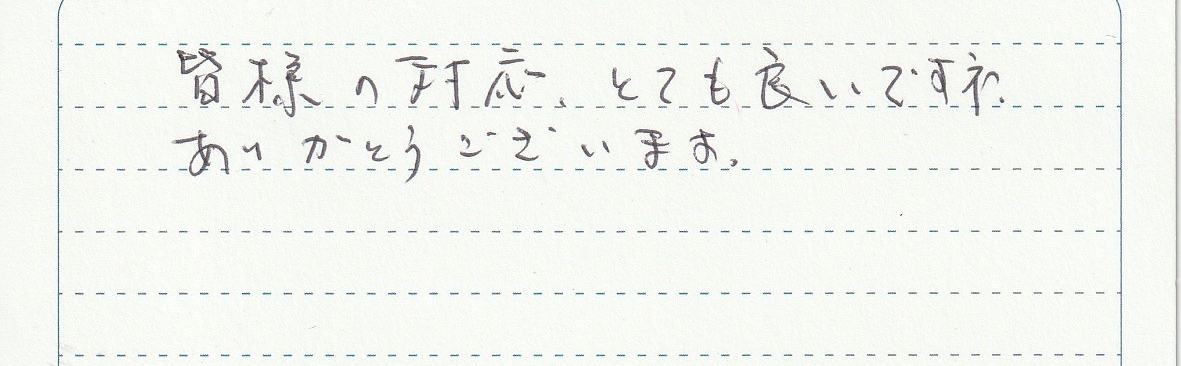 皆様の対応、とても良いですね。
ありがとうございます。